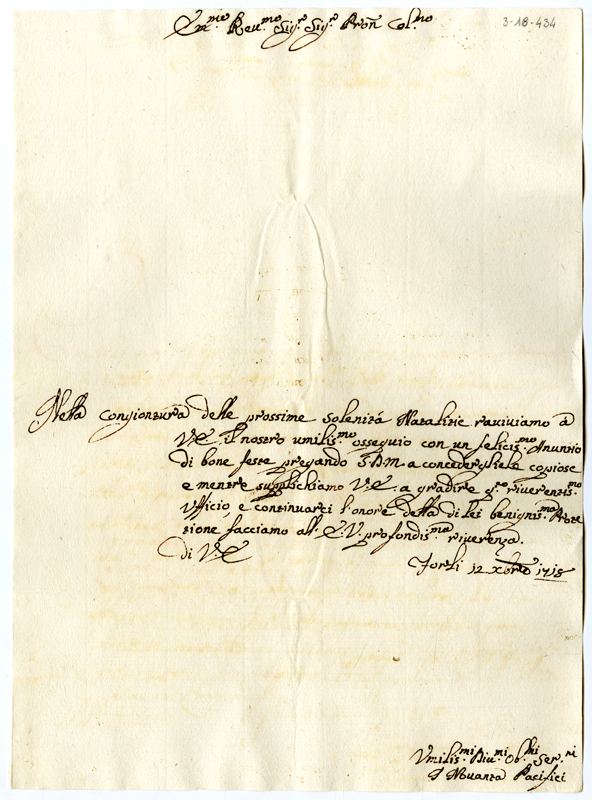 3-18-434
Em.mo Reu.mo Sig.r Sig.r Pron Col.mo
Nella congiontura delle prossime solenità Natalitie raviuiamo a
V.E. il nostro umilis.mo ossequio con un felicis.mo Anuntio
di bone feste pregando S.D.M. a concedergliele copiose
e mentre supplichiamo V.E. a gradire q.to riverentis.mo
Vfficio e continuarci l'onore della di lei benignis.ma Prote
tione facciamo all'E.V. profondis.ma riverenza.
Di V.E.
Forlì 12 Xbre 1718
Vmilis.mi Diu.mi Ob.mi Ser.ri
I Nouanta Pacifici